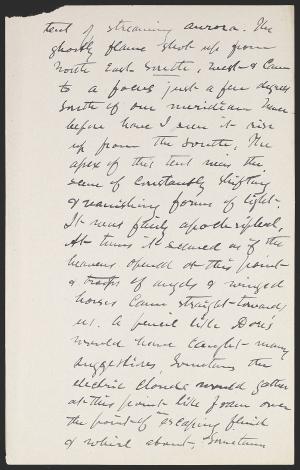 tent of streaming aurora. The
ghostly flame shot up from
North East South, West & Came
to a focus just a few degrees
South of our meridian never
before have I seen it rise
up from the South, The
apex of this tent was the
scene of Constantly shifting
& vanishing forms of light.
It was fairly apocalyptical,
At times it seemed as if the
heavens opened at this point
& troops of angels & winged
horses Came straight towards
us. A pencil like Dore's
would have Caught many
suggestions, Sometimes the
electric clouds would gather
at this point like foam over
the point of escaping fluid
& whirl about, Sometimes